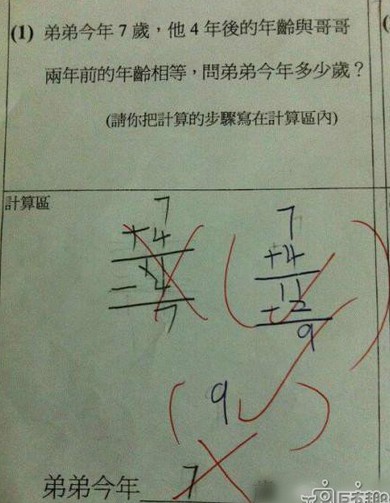 (1) 弟弟今年7歲，他4年後的年齡與哥哥
兩年前的年齡相等，問弟弟今年多少歲？
(請你把計算的步驟寫在計算區內)
計算區
7
+4
11
-4
7
7
+4
11
-2
9
(9)
弟弟今年 7